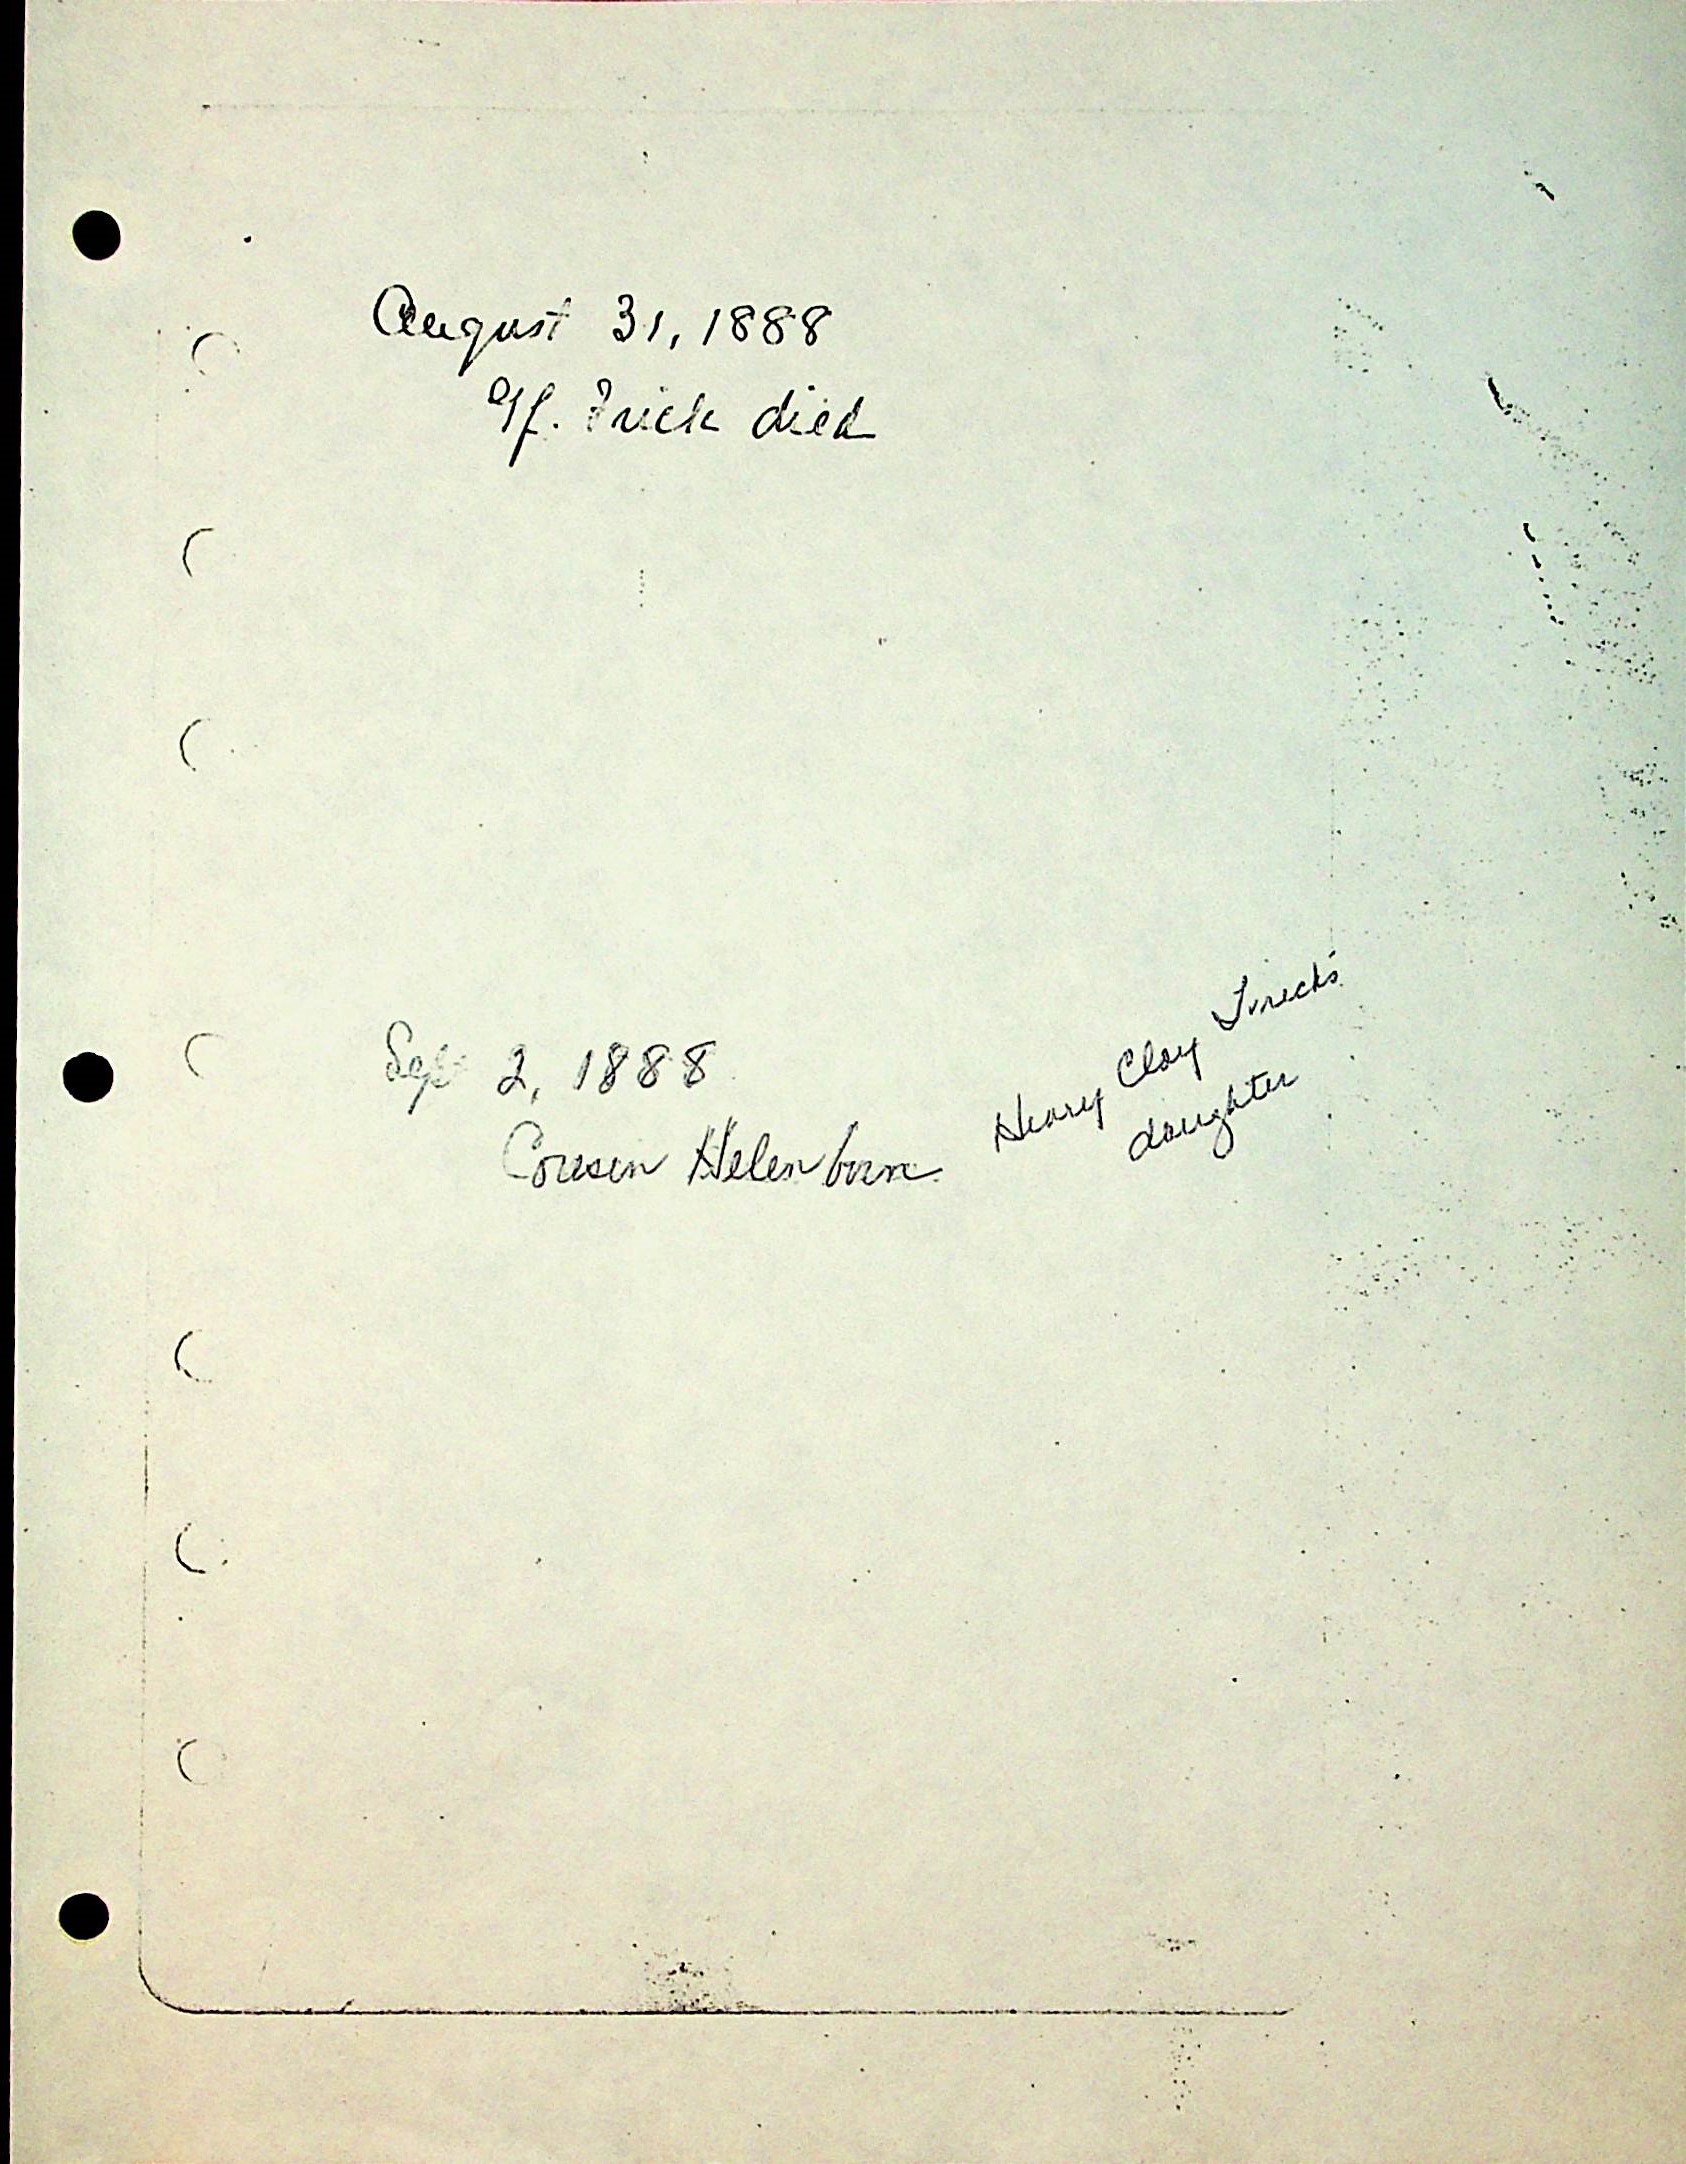 August 31, 1888
Gf. Frick died
Sept 2, 1888
Cousin Helen born
Henry Clay Frick's
daughter